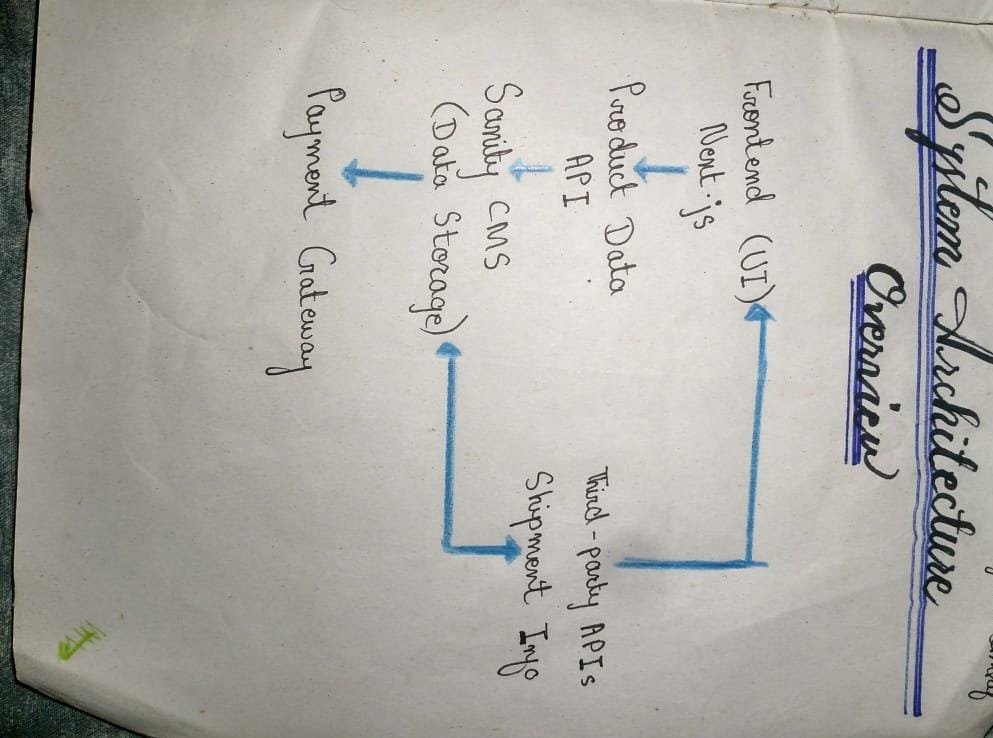 System Architecture
Overview
Frontend (UI)
Next.js
Product Data
API
Sanity CMS
(Data Storage)
Payment Gateway
Third-party APIs
Shipment Info